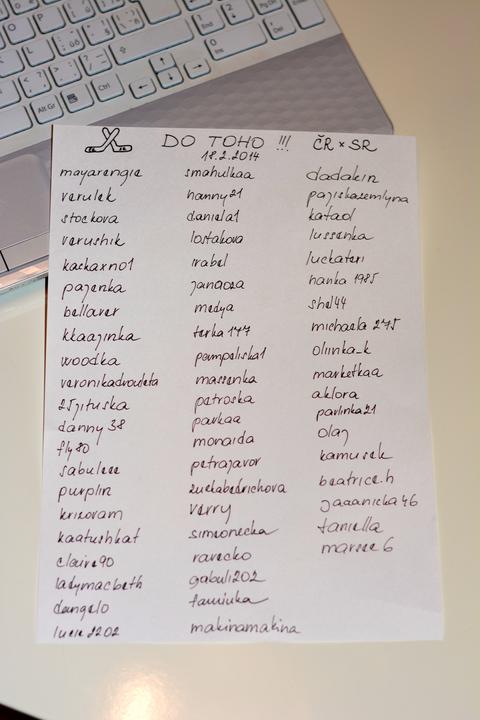 DO TOHO !!! ČR x SR
18.2.2014
mayarengia
verulek
stockova
verushik
kackaxno1
pajenka
bellaver
kkaajinka
woodka
veronikadvouleta
25jituska
danny38
fly80
sabulece
purplin
krizovam
kaatushkat
claire90
ladymacbeth
dangelo
lucie2202
smahulkaa
hanny21
daniela1
lostakova
irabel
janaoza
medya
terka177
pampeliska1
massenka
petroska
pavkaa
monaida
petrajavor
zuckabedrichova
verry
simionecka
ravecko
gabuli202
famiuka
makinamakina
dadakin
pajiskazemlyna
kataol
lussenka
luckateri
hanka1985
shel44
michaela275
oliinka_k
marketkaa
aklora
pavlinka21
olaj
kamusek
beatrice.h
jaaanicka46
taniella
marsee6